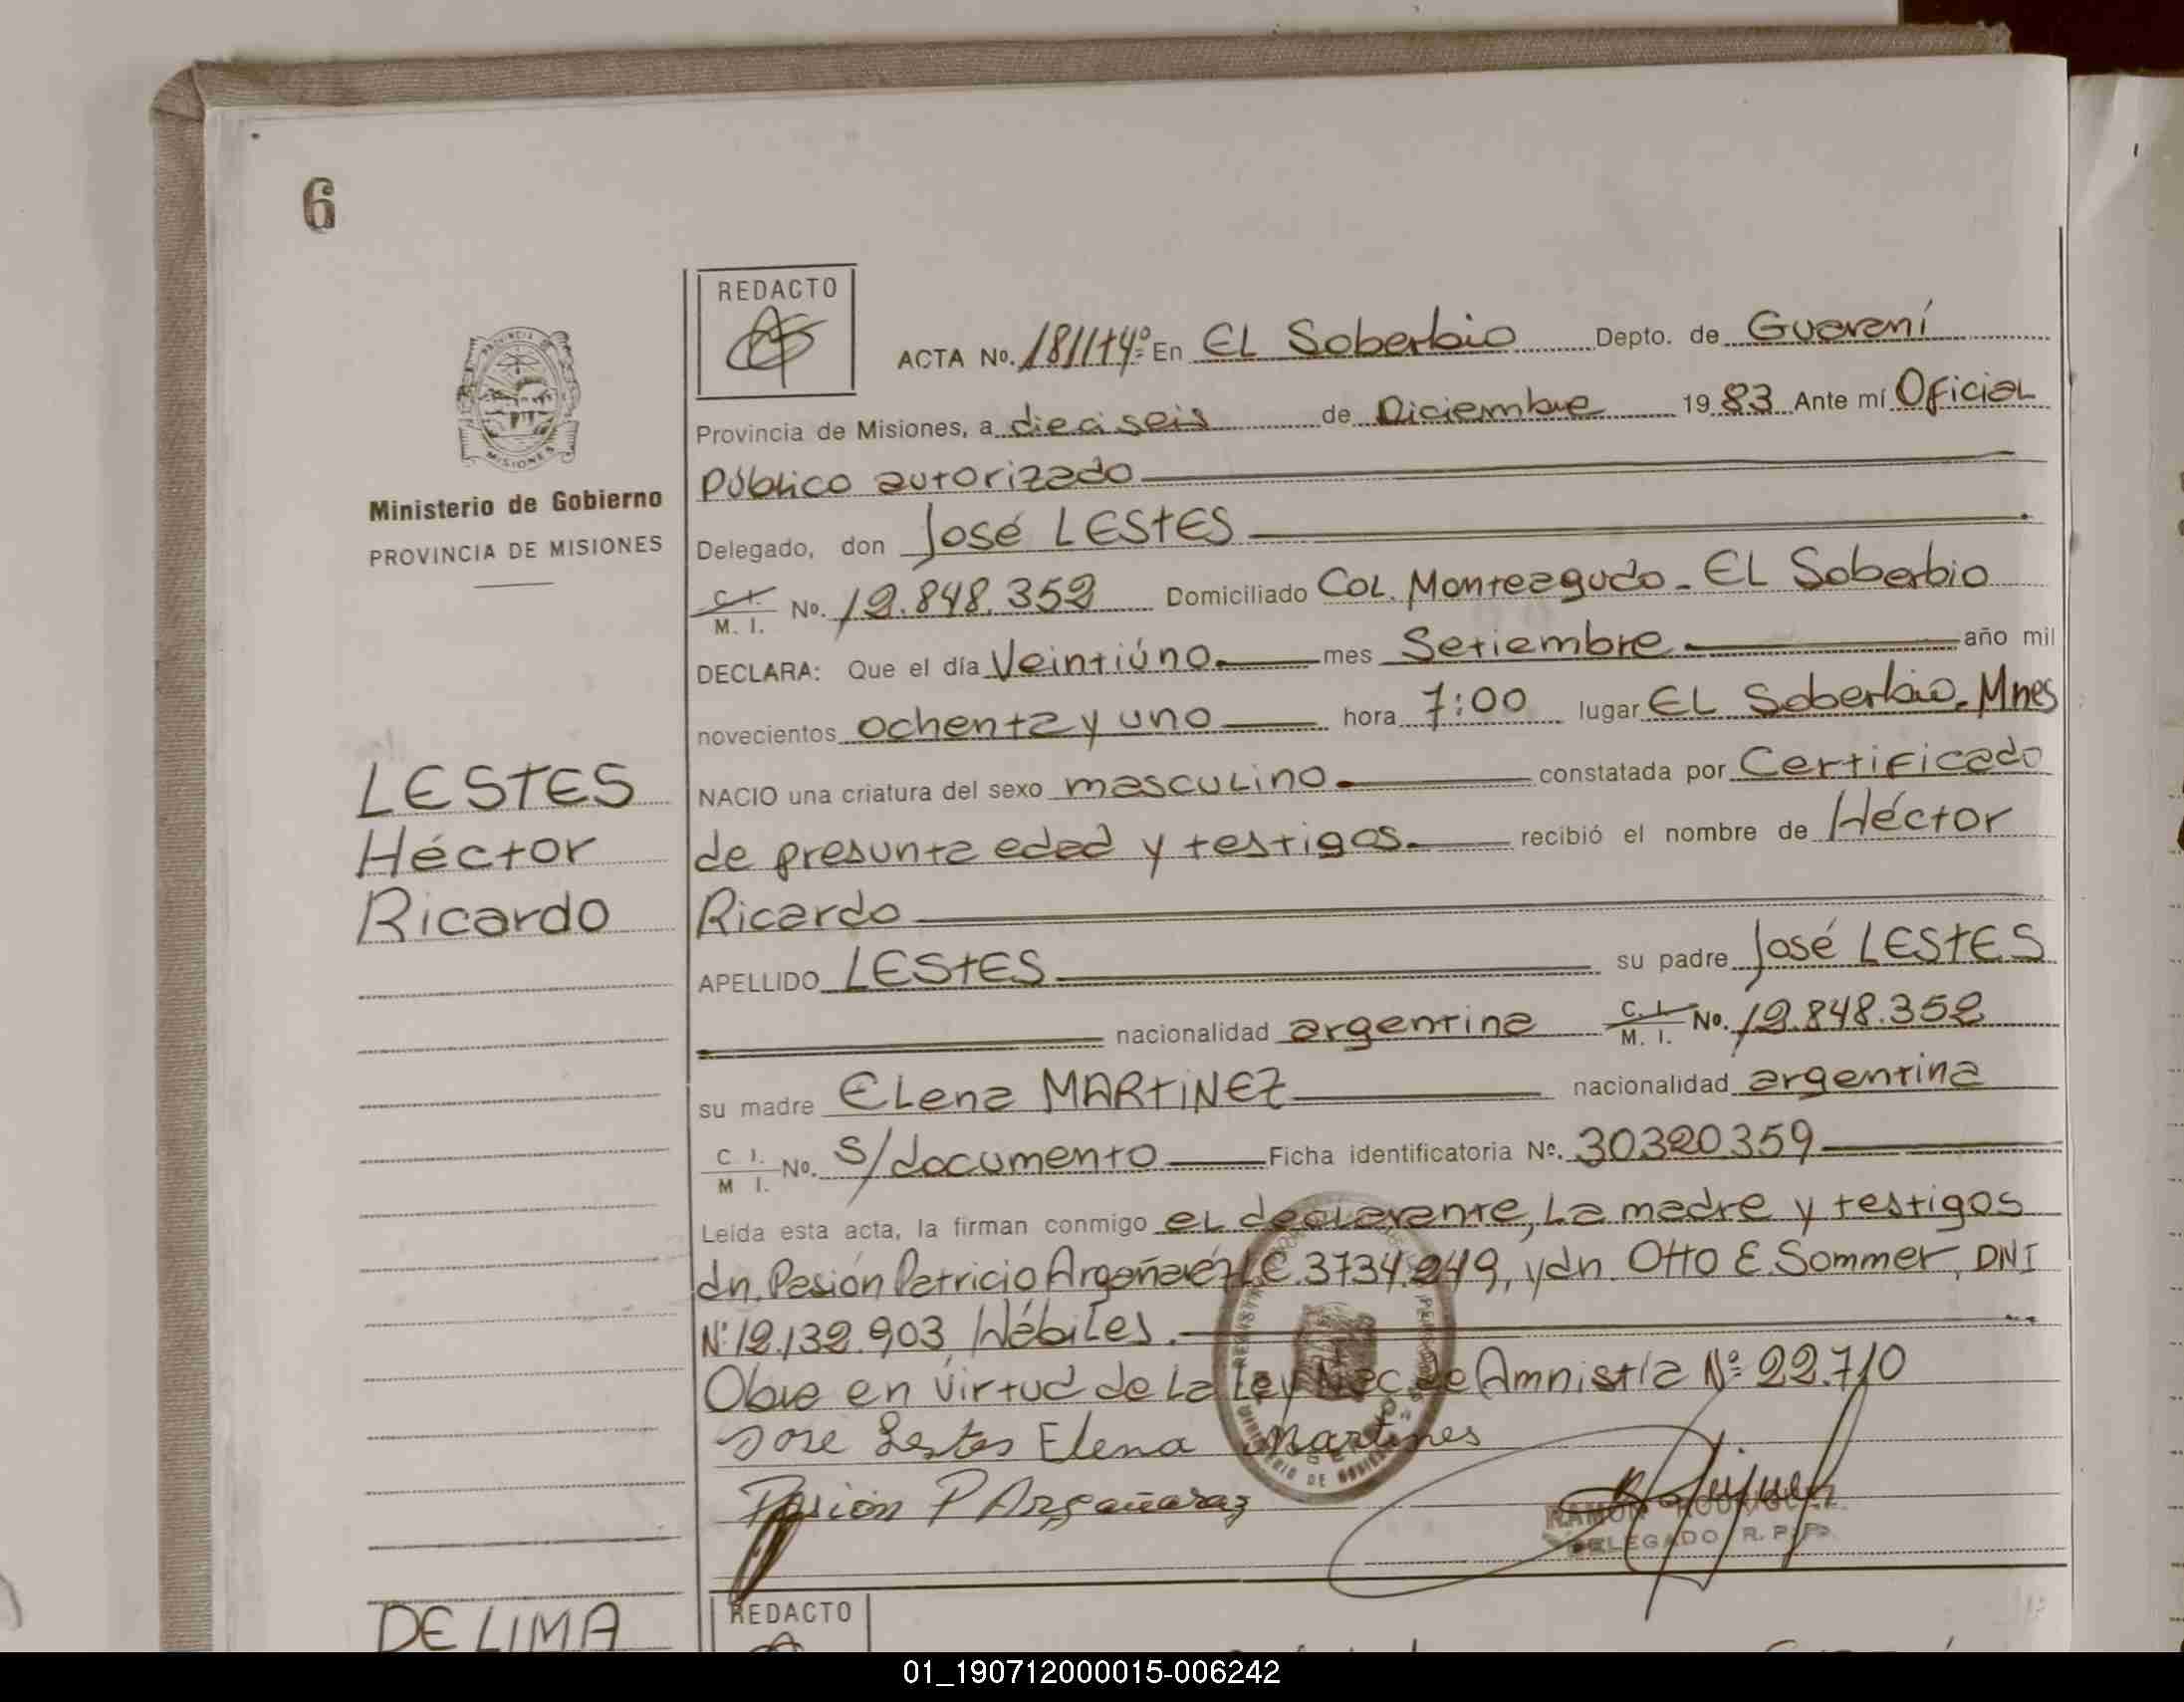 6
REDACTO
ACTA No. 181 T4º En EL Soberbio Depto. de Guaraní
Provincia de Misiones, a dieciseis de Diciembre 1983 Ante mí Oficial
Público autorizado
Delegado, don José LESTES
C. I. M. I. No. 12.848.352 Domiciliado Col. Monteagudo - EL Soberbio
DECLARA: Que el día Veintiúno mes Setiembre año mil
novecientos ochenta y uno hora 7:00 lugar EL Soberbio, Mnes
NACIO una criatura del sexo masculino constatada por Certificado
de presunta edad y testigos. recibió el nombre de Héctor
Ricardo
APELLIDO LESTES su padre José LESTES
nacionalidad argentina C. I. M. I. No. 12.848.352
su madre Elena MARTINEZ nacionalidad argentina
C I. M I. No. S/documento Ficha identificatoria No. 30320359
Leída esta acta, la firman conmigo el declarante, La madre y testigos
dn. Pasión Patricio Argañaréz LC. 3734.249, y dn. Otto E. Sommer, DNI
Nº 12.132.903, Hábiles.
Obre en virtud de La Ley Nac. de Amnistía Nº 22.710
Jose Lestes Elena Martines
Pasión P Argañaraz
RAMON RODRIGUEZ
DELEGADO R. P. P.
PROVINCIA DE
MISIONES
Ministerio de Gobierno
PROVINCIA DE MISIONES
LESTES
Héctor
Ricardo
DE LIMA
REDACTO
01_190712000015-006242